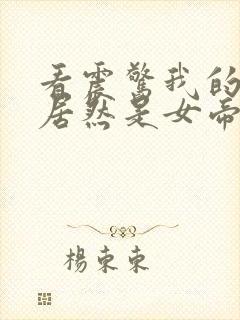 看震驚我的
居然是女帝
楊東東